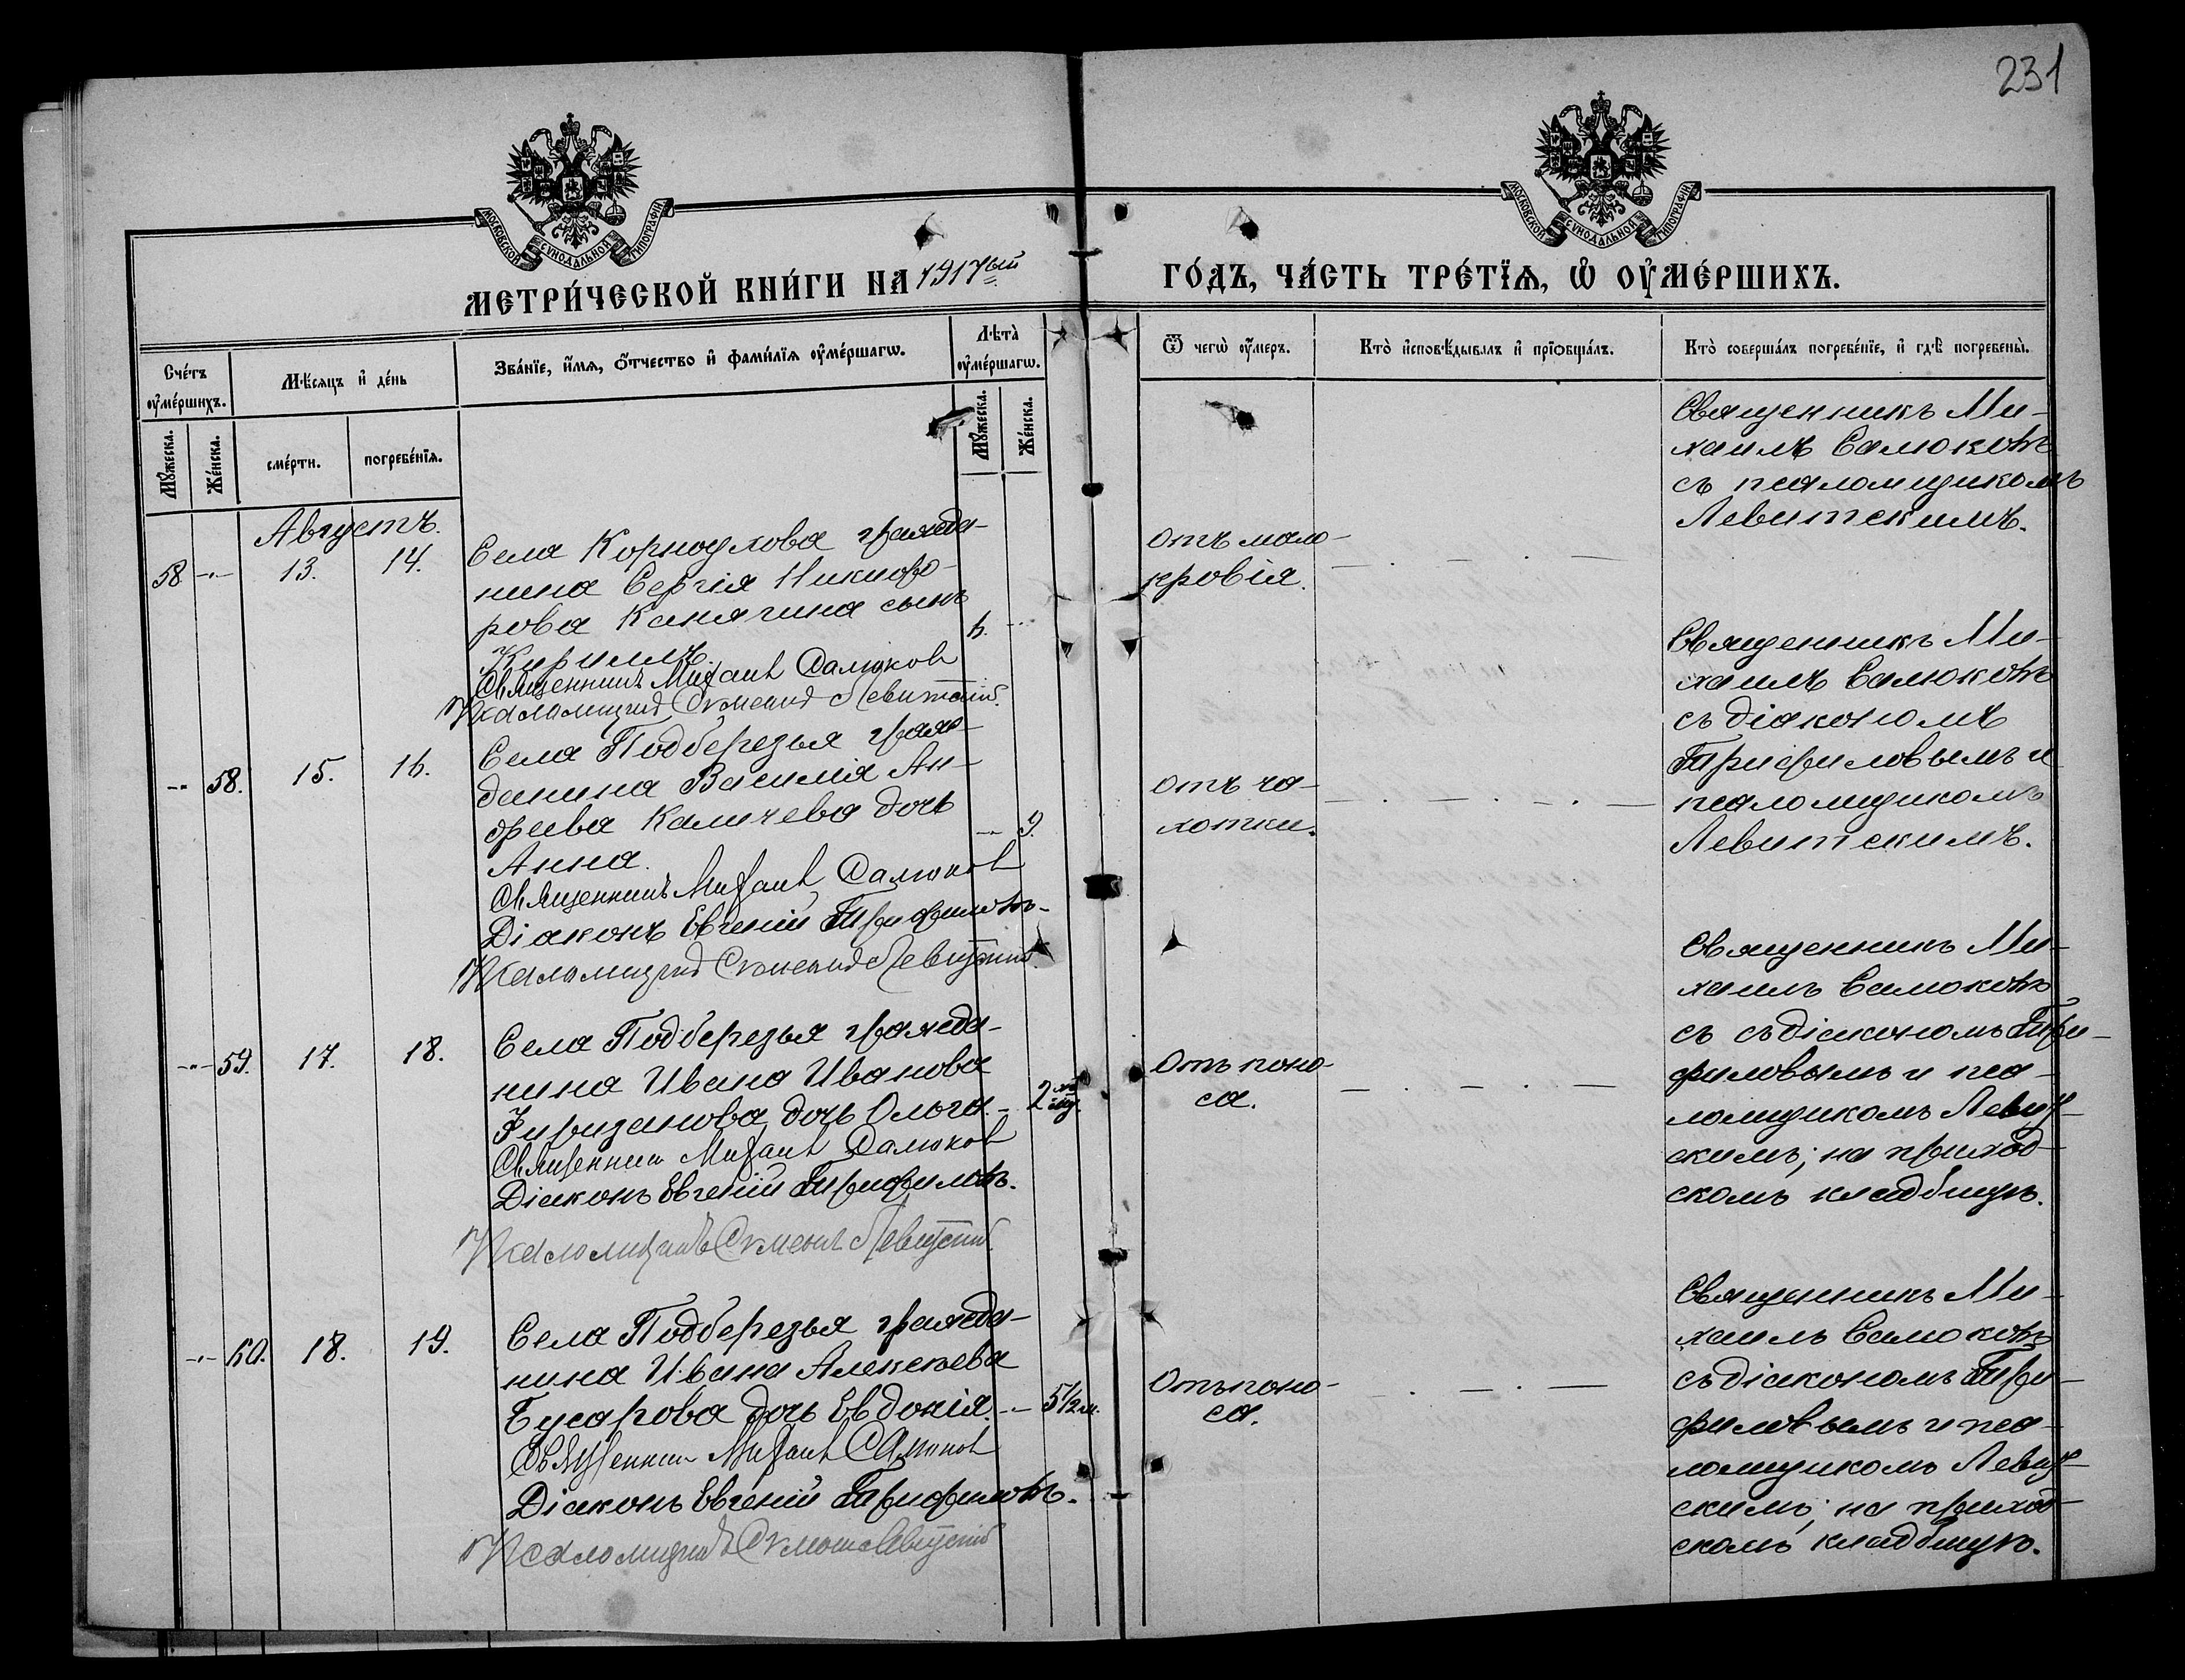 231
МОСКОВСКОЙ СѴНОДАЛЬНОЙ ТИПОГРАФІИ
МОСКОВСКОЙ СѴНОДАЛЬНОЙ ТИПОГРАФІИ
МЕТРИ́ЧЕСКОЙ КНИ́ГИ НА 1917ый
ГО́ДЪ, ЧА́СТЬ ТРЕ́ТЇѦ, Ѡ҆ ОУ҆МЕ́РШИХЪ.
Сче́тъ оу҆ме́ршихъ.
Мѣ́сяцъ и҆ де́нь
Зва́нїе, и҆́мѧ, ѻ҆́тчество и҆ фами́лїѧ оу҆ме́ршагѡ.
Лѣта̀ оу҆ме́ршагѡ.
Ѿ чегѡ̀ оу҆́меръ.
Кто̀ и҆сповѣ́дывалъ и҆ прїѡбща́лъ.
Кто̀ соверша́лъ погребе́нїе, и҆ гдѣ̀ погребены̀.
Мꙋ́жеска.
Же́нска.
сме́рти.
погребе́нїѧ.
Мꙋ́жеска.
Же́нска.
Августъ.
58 -"- 13. 14.
Села Корноухова гражда-
нина Сергія Никифо-
рова Канягина сынъ
Кириллъ
6.
Священникъ Михаилъ Самюков
Псаломщикъ Левитскій.
Отъ мало-
кровія.
Священникъ Ми-
хаилъ Самюковъ
съ псаломщикомъ
Левитскимъ.
-"- 58. 15. 16.
Села Подберезья граж-
данина Василія Ан-
дреева Каличева дочь
Анна.
-"- 9.
Священникъ Михаилъ Самюков
Діаконъ Евгеній Трифиловъ.
Псаломщикъ Левитскій.
Отъ ча-
хотки.
Священникъ Ми-
хаилъ Самюковъ
съ діакономъ
Трифиловымъ и
псаломщикомъ
Левитскимъ.
-"- 59. 17. 18.
Села Подберезья гражда-
нина Ивана Иванова
дочь Ольга. -
2
Священникъ Михаилъ Самюков
Діаконъ Евгеній Трифиловъ.
Псаломщикъ Левитскій
Отъ поно-
са.
Священникъ Ми-
хаилъ Самюковъ
съ съ діакономъ Три-
филовымъ и пса-
ломщикомъ Левит-
скимъ; на приход-
скомъ кладбищѣ.
-"- 60. 18. 19.
Села Подберезья гражда-
нина Ивана Алексѣева
Бусарова дочь Евдокія. -"- 5½ м.
Священникъ Михаилъ Самюков
Діаконъ Евгеній Трифиловъ.
Псаломщикъ Левитскій
Отъ поно-
са.
Священникъ Ми-
хаилъ Самюковъ
съ діакономъ Три-
филовымъ и пса-
ломщикомъ Левит-
скимъ; на приход-
скомъ кладбищѣ.